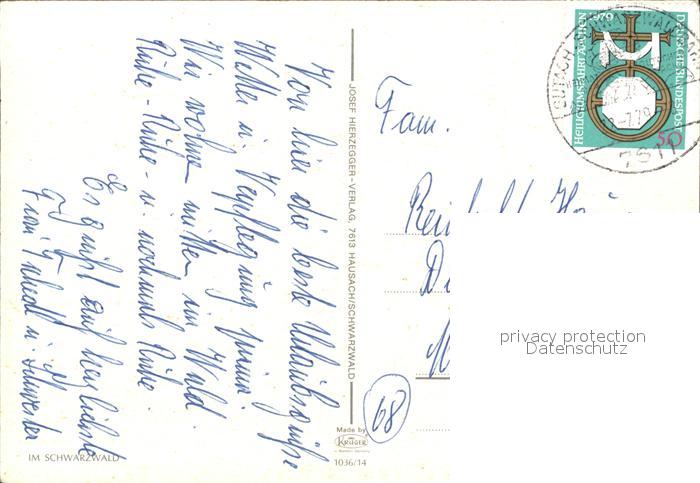 Von hier die beste Urlaubsgrüße
Wetter u. Verpflegung prima.
Wir wohnen mitten im Wald.
Ruhe - Ruhe - u. nochmals Ruhe.
Es grüßt auf herzlichste
Frau u. Schwester
IM SCHWARZWALD
JOSEF HIERZEGGER-VERLAG, 7613 HAUSACH/SCHWARZWALD
Made by
KRÜGER
1036/14
68
Fam.
HEILIGTUMSFAHRT AACHEN
1979
DEUTSCHE BUNDESPOST
50
GUTACH
7611
privacy protection
Datenschutz